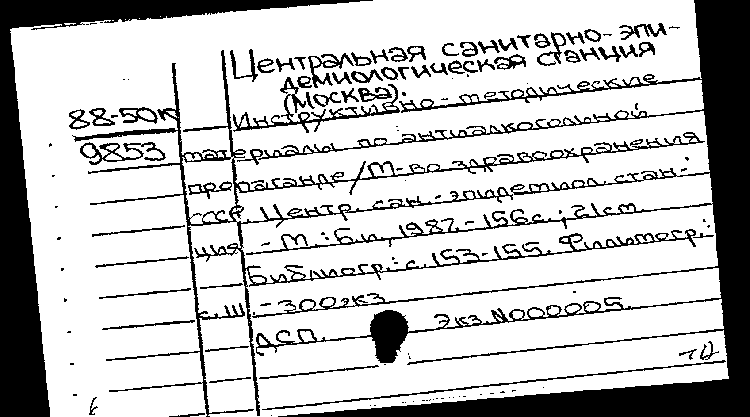 Центральная санитарно-эпи-
демиологическая станция
(Москва).
88-50к
Инструктивно-методические
9853
материалы по антиалкогольной
пропаганде/М-во здравоохранения
СССР. Центр. сан.-эпидемиол. стан-
ция. - М.: Б.и., 1987. - 156с.; 21см.
Библиогр.: с. 153-155.
с. III. - 300экз
ДСП. Экз.N000005.